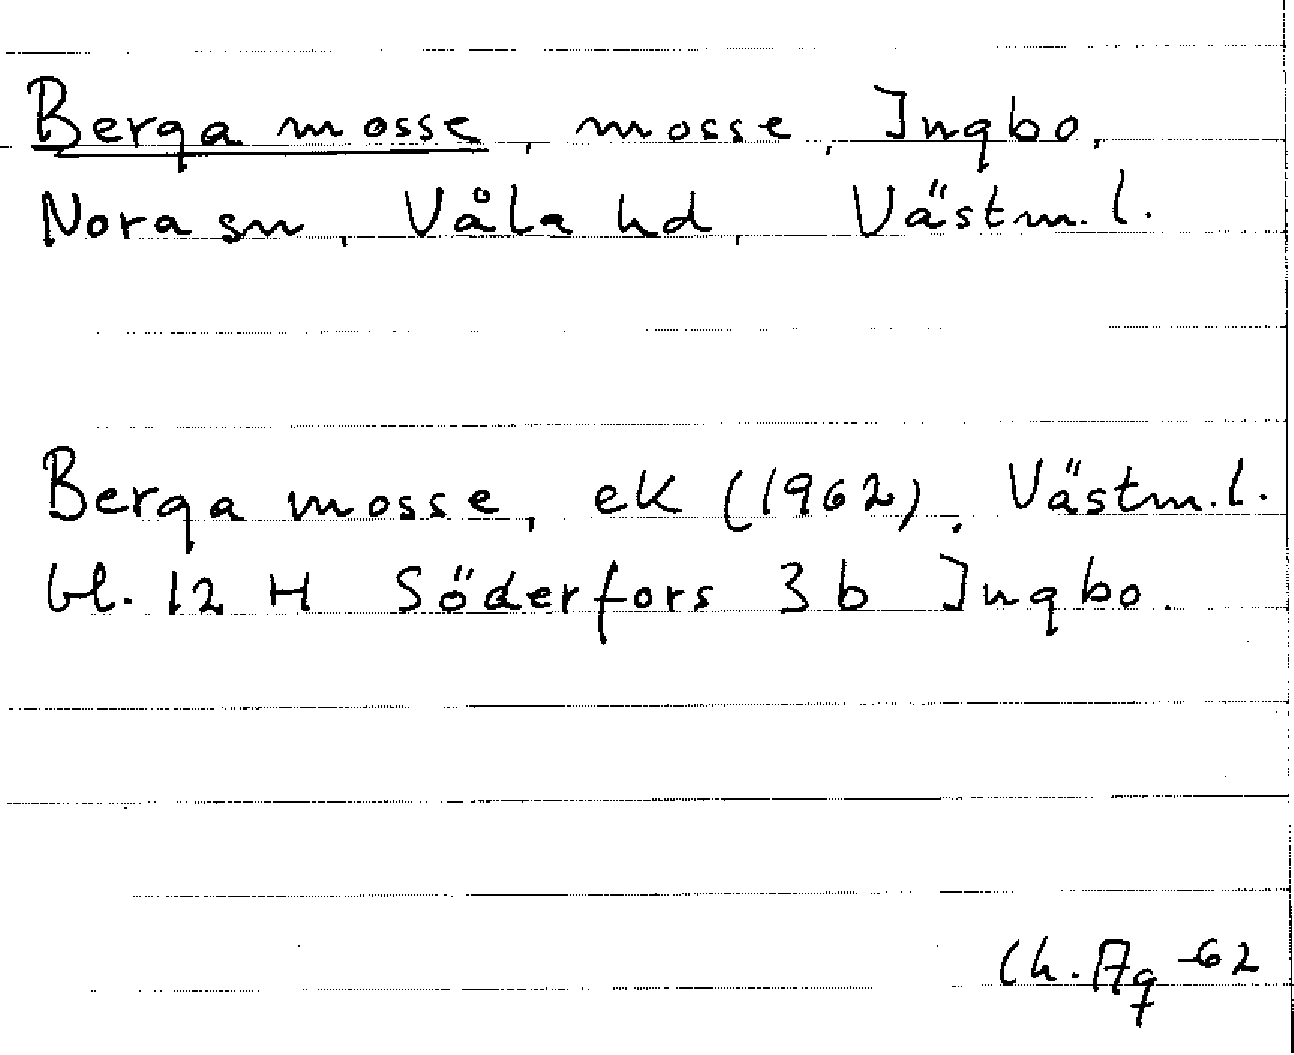 Berga mosse, mosse, Ingbo,
Nora sn, Våla hd, Västm. l.
Berga mosse, ek (1962), Västm. l.
bl. 12 H Söderfors 3 b Ingbo.
Ch. Ag -62